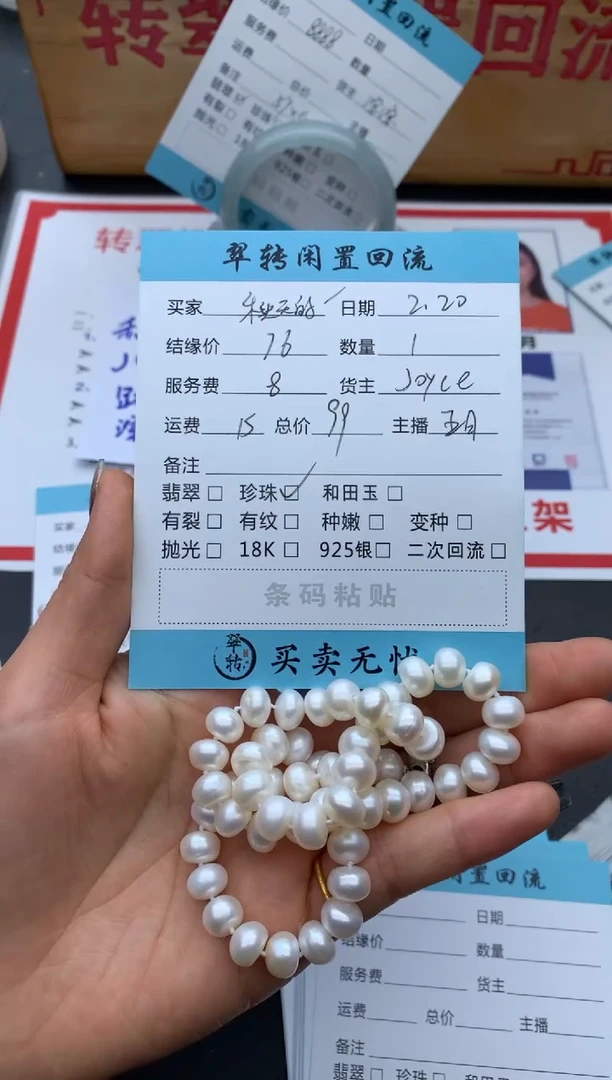 转翠
回流
置回流
结缘价 8888 日期
服务费 数量
运费 货主
备注 总价
有裂□
抛光□
925银□ 二次回流□
翠转闲置回流
买家 秋天的 日期 2.20
结缘价 76 数量 1
服务费 8 货主 Joyce
运费 15 总价 99 主播 五月
备注
翡翠 □ 珍珠 ☑ 和田玉 □
有裂 □ 有纹 □ 种嫩 □ 变种 □
抛光 □ 18K □ 925银□ 二次回流 □
条码粘贴
翠转 买卖无忧
转
月
架
买家
结缘价
闲置回流
日期
结缘价 数量
服务费 货主
运费 总价 主播
备注
翡翠 □ 珍珠 □